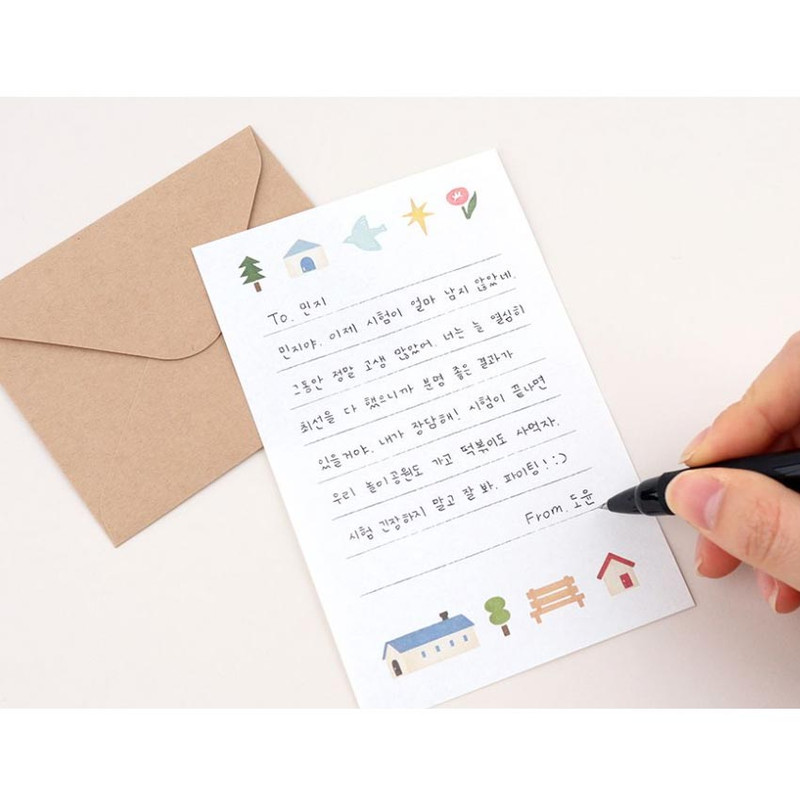 To. 민지
민지야. 이제 시험이 얼마 남지 않았네.
그동안 정말 고생 많았어. 너는 늘 열심히
최선을 다 했으니까 분명 좋은 결과가
있을거야. 내가 장담해! 시험이 끝나면
우리 놀이공원도 가고 떡볶이도 사먹자.
시험 긴장하지 말고 잘 봐. 파이팅! :)
From. 도윤